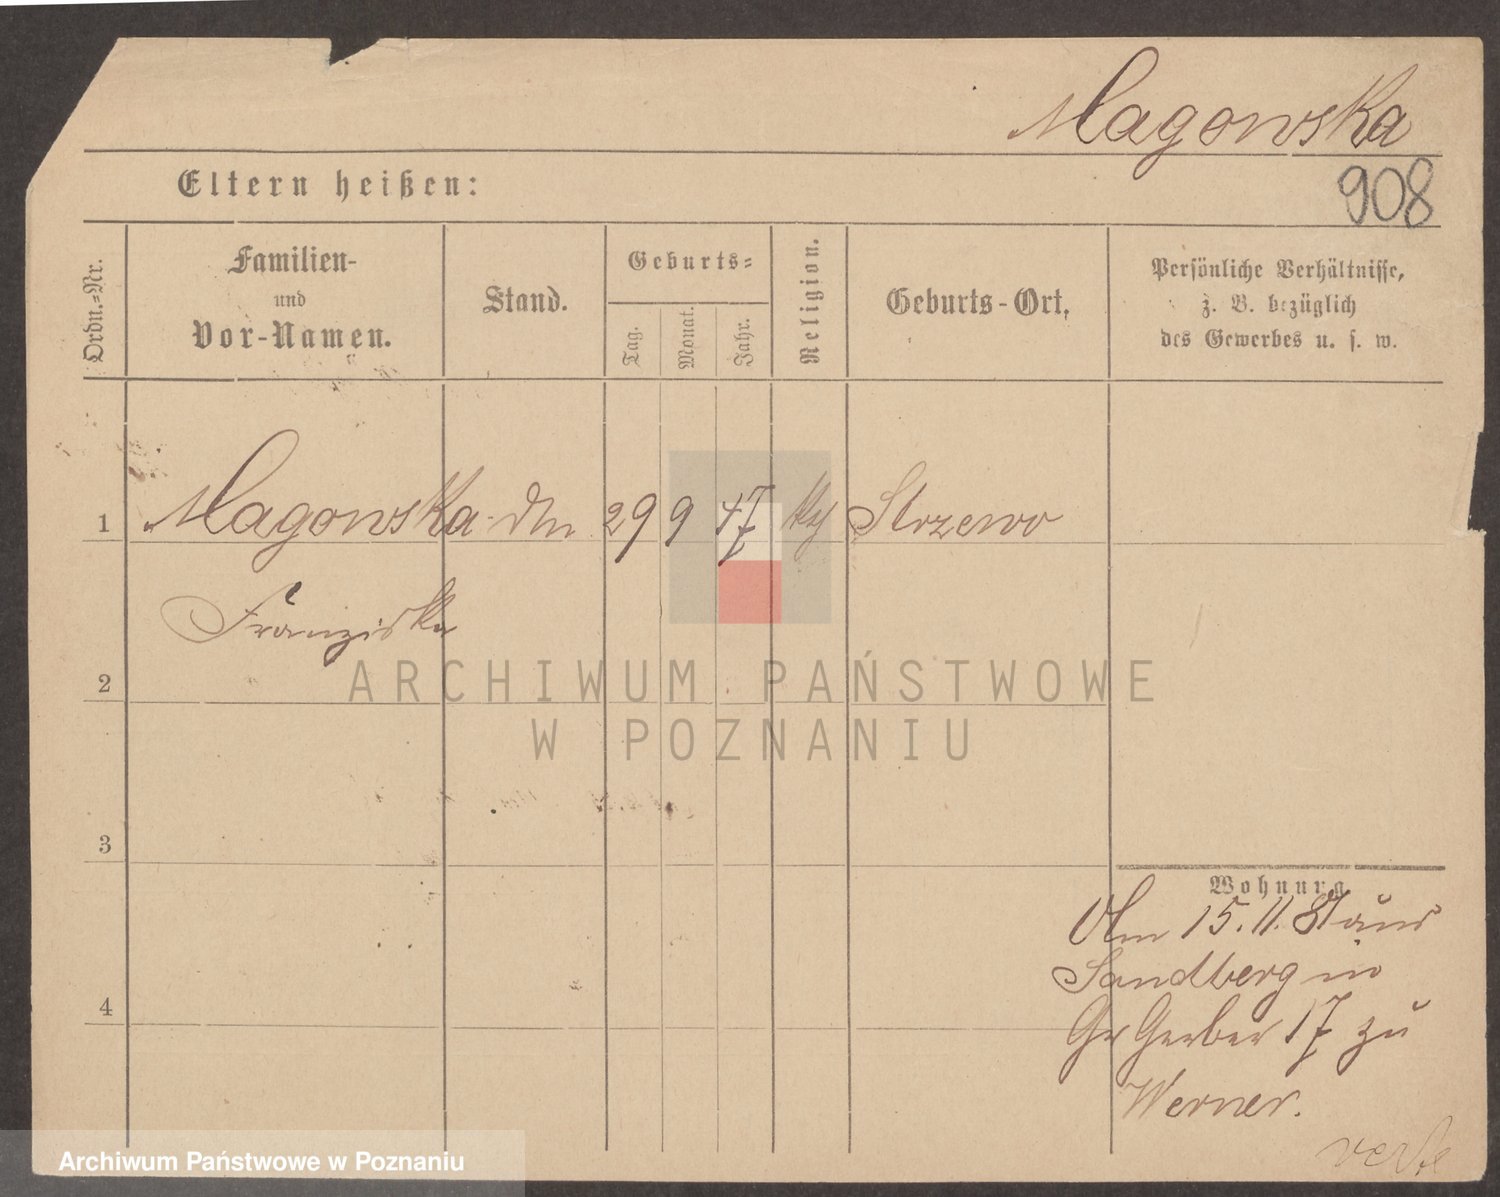 Magowska
Eltern heißen:
908
Ordn.-Nr.
Familien-
und
Vor-Namen.
Stand.
Geburts-
Tag.
Monat.
Jahr.
Religion.
Geburts-Ort.
Persönliche Verhältnisse,
z. B. bezüglich
des Gewerbes u. s. w.
1 Magowska 29 9 47 Strzewo
Franziska
2
ARCHIWUM PAŃSTWOWE
W POZNANIU
3
Wohnung
15. 11. 81 aus
Sandberg in
Gr Gerber 17 zu
4
Werner.
Archiwum Państwowe w Poznaniu